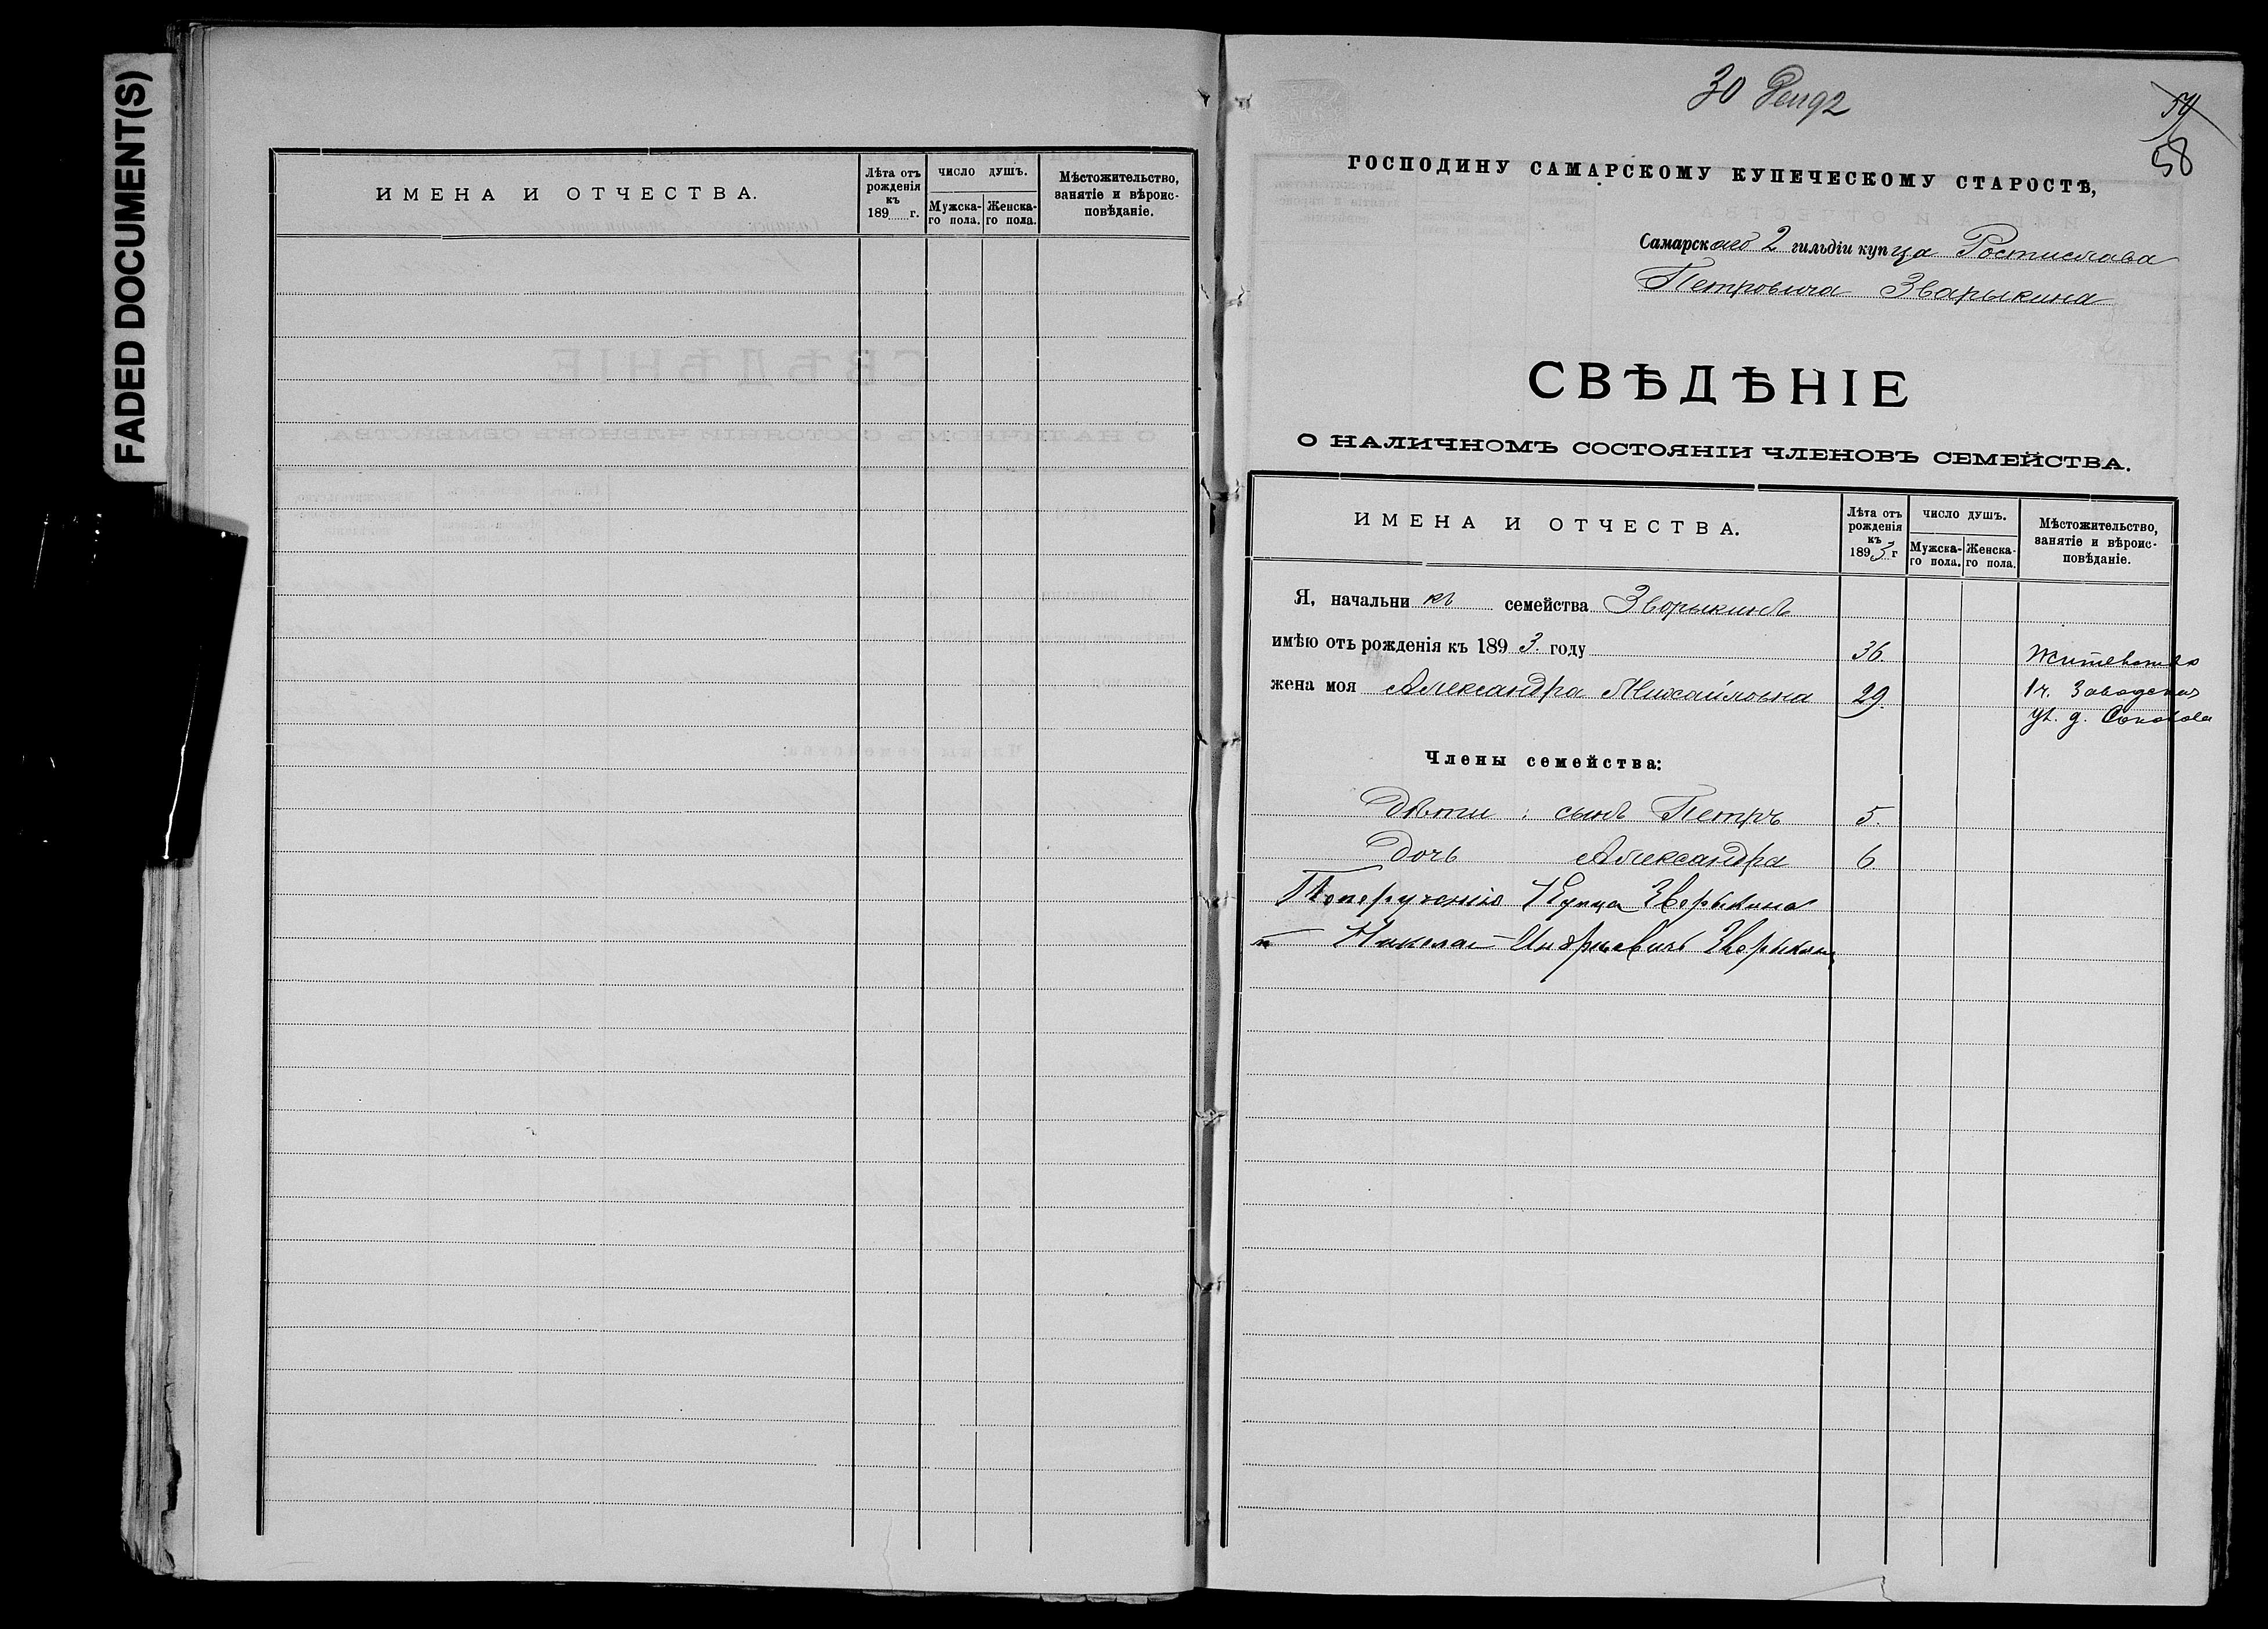 FADED DOCUMENT(S)
ИМЕНА И ОТЧЕСТВА.
Лѣта отъ рожденія къ 189 г.
ЧИСЛО ДУШЪ.
Мужска-го пола.
Женска-го пола.
Мѣстожительство, занятіе и вѣроис-повѣданіе.
30
54
58
ГОСПОДИНУ САМАРСКОМУ КУПЕЧЕСКОМУ СТАРОСТѢ,
Самарскаго 2 гильдіи купца Ростислава
Петровича Зварыкина
СВѢДѢНІЕ
О НАЛИЧНОМЪ СОСТОЯНІИ ЧЛЕНОВЪ СЕМЕЙСТВА.
ИМЕНА И ОТЧЕСТВА.
Лѣта отъ рожденія къ 1893 г
ЧИСЛО ДУШЪ.
Мужска-го пола.
Женска-го пола.
Мѣстожительство, занятіе и вѣроис-повѣданіе.
Я, начальникъ семейства Зворыкинъ
имѣю отъ рожденія къ 1893. году 36.
жена моя Александра Михайловна 29. 1 ч. Заводская
ул. д.
Члены семейства:
Дѣти: сынъ Петръ 5.
Дочь Александра 6
Купца